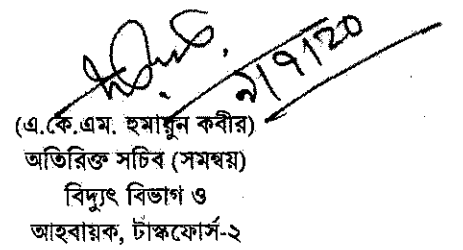 ৯/৭/২০
(এ.কে.এম. হুমায়ুন কবীর)
অতিরিক্ত সচিব (সমন্বয়)
বিদ্যুৎ বিভাগ ও
আহবায়ক, টাস্কফোর্স-২